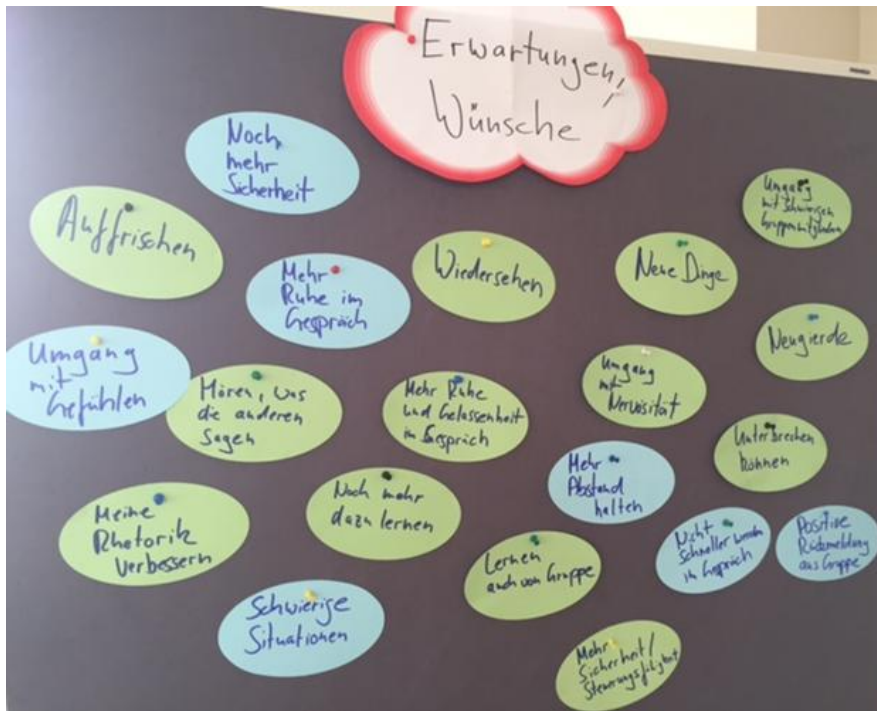 Erwartungen,
Wünsche
Noch
mehr
Sicherheit
Auffrischen
Mehr
Ruhe im
Gespräch
Wiedersehen
Neue Dinge
Umgang
mit schwierigen
Gruppenmitgliedern
Umgang
mit
Gefühlen
Hören, was
die anderen
sagen
Mehr Ruhe
und Gelassenheit
im Gespräch
Umgang
mit
Nervosität
Neugierde
Unterbrechen
können
Meine
Rhetorik
verbessern
Noch mehr
dazu lernen
Mehr
Abstand
halten
Lernen
auch von Gruppe
Nicht
schneller werden
im Gespräch
Positive
Rückmeldung
aus Gruppe
Schwierige
Situationen
Mehr
Sicherheit/
Steuerungsfähigkeit